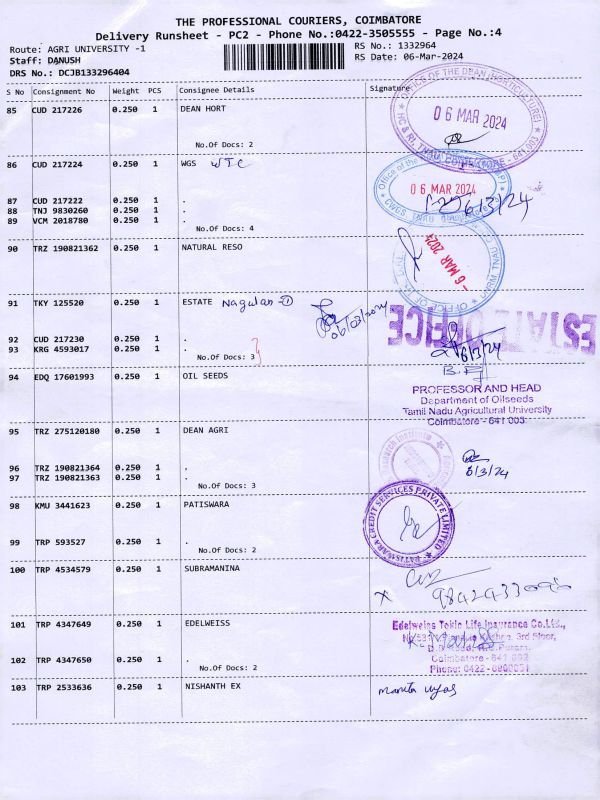 THE PROFESSIONAL COURIERS, COIMBATORE
Delivery Runsheet - PC2 - Phone No.:0422-3505555 - Page No.:4
Route: AGRI UNIVERSITY -1
RS No.: 1332964
Staff: DANUSH
RS Date: 06-Mar-2024
DRS No.: DCJB133296404
S No Consignment No Weight PCS Consignee Details Signature
85 CUD 217226 0.250 1 DEAN HORT
OFFICE OF THE DEAN (HORTICULTURE)
06 MAR 2024
HC & RI, TNAU - 641 003
No.Of Docs: 2
86 CUD 217224 0.250 1 WGS WTC
Office of the
06 MAR 2024
6/3/24
87 CUD 217222 0.250 1 .
88 TNJ 9830260 0.250 1 .
89 VCM 2018780 0.250 1 .
No.Of Docs: 4
90 TRZ 190821362 0.250 1 NATURAL RESO
6 MAR 2024
91 TKY 125520 0.250 1 ESTATE Nagulan
06/03/2024
ESTATE OFFICE
92 CUD 217230 0.250 1 .
93 KRG 4593017 0.250 1 .
No.Of Docs: 3
6/3/24
94 EDQ 17601993 0.250 1 OIL SEEDS
PROFESSOR AND HEAD
Department of Oilseeds
Tamil Nadu Agricultural University
Coimbatore - 641 003
95 TRZ 275120180 0.250 1 DEAN AGRI
6/3/24
96 TRZ 190821364 0.250 1 .
97 TRZ 190821363 0.250 1 .
No.Of Docs: 3
98 KMU 3441623 0.250 1 PATISWARA
PATISWARA CREDIT SERVICES PRIVATE LIMITED
99 TRP 593527 0.250 1 .
No.Of Docs: 2
100 TRP 4534579 0.250 1 SUBRAMANINA
X
101 TRP 4347649 0.250 1 EDELWEISS
Edelweiss Tokio Life Insurance Co.Ltd.,
3rd Floor,
Coimbatore - 641 002
Phone: 0422-
102 TRP 4347650 0.250 1 .
No.Of Docs: 2
103 TRP 2533636 0.250 1 NISHANTH EX